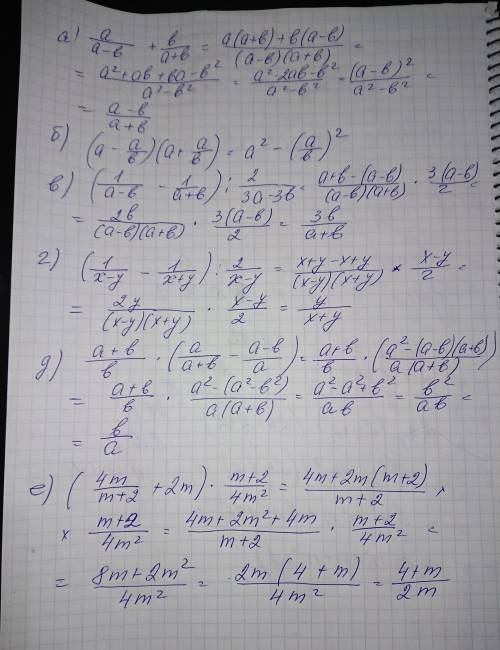 а) a/(a-b) + b/(a+b) = (a(a+b)+b(a-b))/((a-b)(a+b)) =
= (a²+ab+ba-b²)/(a²-b²) = (a²-2ab-b²)/(a²-b²) = (a-b)²/(a²-b²) =
= (a-b)/(a+b)
б) (a - a/b)(a + a/b) = a² - (a/b)²
в) (1/(a-b) - 1/(a+b)) : 2/(3a-3b) = (a+b-(a-b))/((a-b)(a+b)) · 3(a-b)/2 =
= 2b/((a-b)(a+b)) · 3(a-b)/2 = 3b/(a+b)
г) (1/(x-y) - 1/(x+y)) : 2/(x-y) = (x+y-x+y)/((x-y)(x+y)) × (x-y)/2 =
= 2y/((x-y)(x+y)) · (x-y)/2 = y/(x+y)
д) (a+b)/b · (a/(a+b) - (a-b)/a) = (a+b)/b · ((a²-(a-b)(a+b))/(a(a+b)))
= (a+b)/b · (a²-(a²-b²))/(a(a+b)) = (a²-a²+b²)/(ab) = b²/(ab) =
= b/a
е) (4m/(m+2) + 2m) · (m+2)/(4m²) = (4m+2m(m+2))/(m+2) ×
× (m+2)/(4m²) = (4m+2m²+4m)/(m+2) · (m+2)/(4m²) =
= (8m+2m²)/(4m²) = 2m(4+m)/(4m²) = (4+m)/(2m)